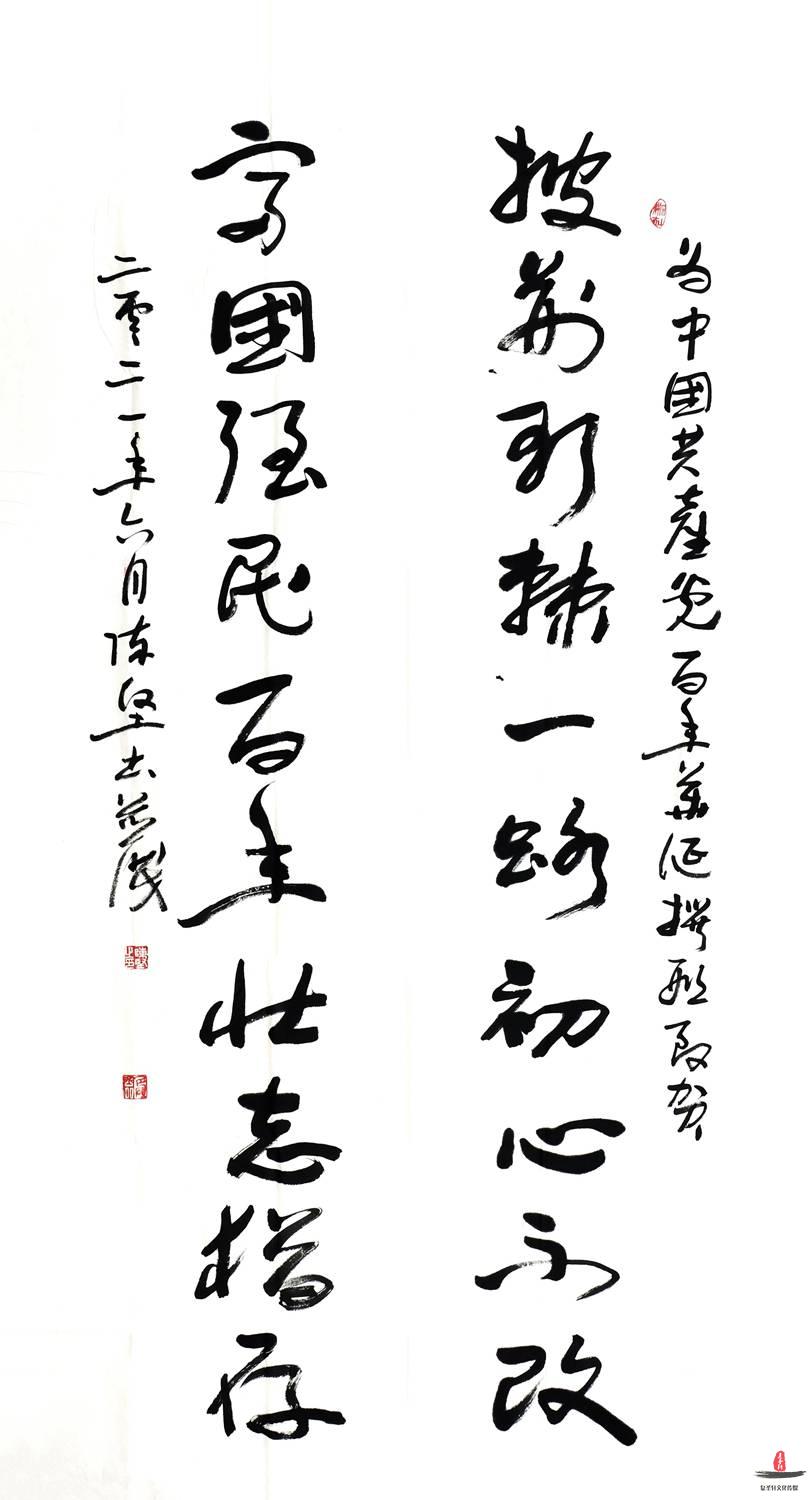 为中國共產党百年華诞撰联致贺
披荆斩棘一路初心不改
富國强民百年壮志猶存
二零二一年六月陈坚书